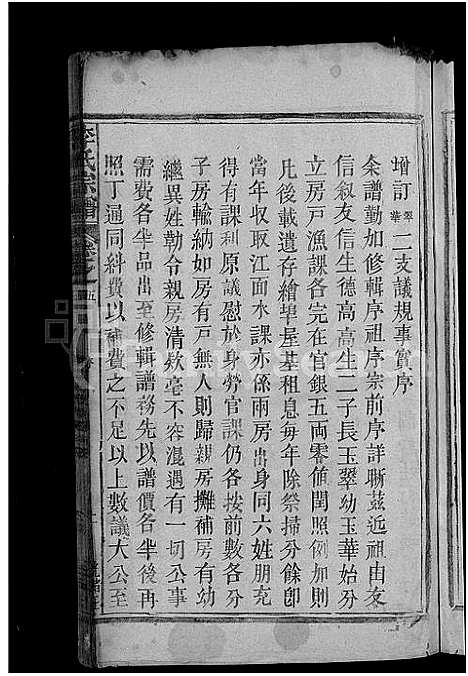 增訂翠華二支議規事實序
余譜勤加修輯序祖序宗前序詳晰茲近祖由友
信叙友信生德高高生二子長玉翠幼玉華始分
立房戸漁課各完在官銀五両零値閏照例加則
凡後載遺存繪埠屋基租息每年除祭掃分餘卽
當年收取江面水課亦係兩房出身同六姓朋充
得有課利原議慰於身勞官課仍各按前數各分
子房輸納如房有戸無人則歸親房攤補房有幼
繼異姓勒令親房清欸毫不容混遇有一切公事
需費各半品出至修輯譜務先以譜價各半後再
照丁通同斜費以補費之不足以上數議大公至
李氏宗譜
卷之五